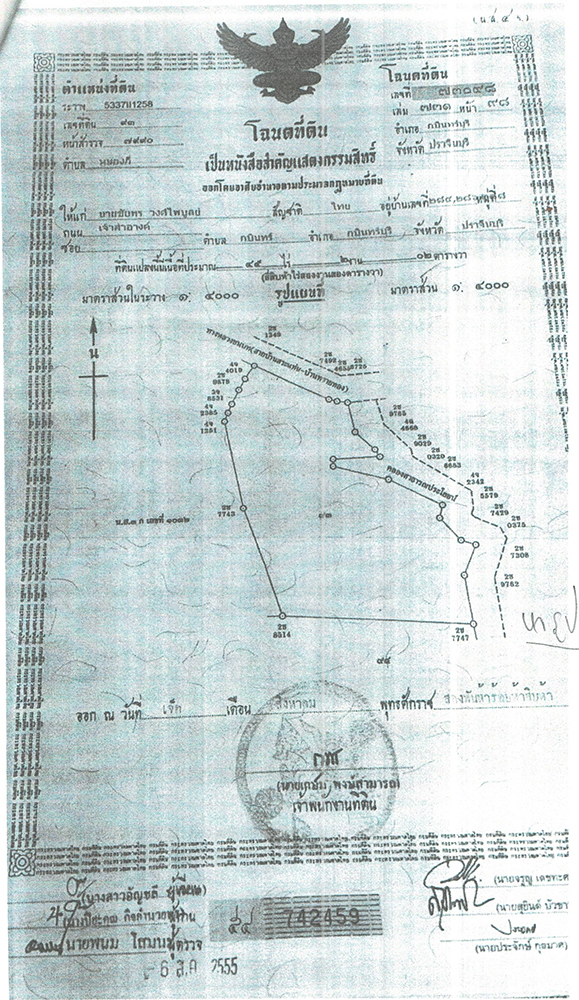 (น.ส. ๔ จ.)
ตำแหน่งที่ดิน
ระวาง 5337II1258
เลขที่ดิน ๙๓
หน้าสำรวจ ๗๙๙๐
ตำบล หนองกี่
โฉนดที่ดิน
เลขที่ ๗๓๐๔๘
เล่ม ๗๓๑ หน้า ๔๘
อำเภอ กบินทร์บุรี
จังหวัด ปราจีนบุรี
โฉนดที่ดิน
เป็นหนังสือสำคัญแสดงกรรมสิทธิ์
ออกโดยอาศัยอำนาจตามประมวลกฎหมายที่ดิน
ให้แก่ นายชัยพร วงศ์ไพบูลย์ สัญชาติ ไทย อยู่บ้านเลขที่ หมู่ที่
ถนน เจ้าสำอางค์
ซอย ตำบล กบินทร์ อำเภอ กบินทร์บุรี จังหวัด ปราจีนบุรี
ที่ดินแปลงนี้มีเนื้อที่ประมาณ ๔๕ ไร่ ๒ งาน ๐๒ ตารางวา
(สี่สิบห้าไร่สองงานสองตารางวา)
มาตราส่วนในระวาง ๑: ๔๐๐๐ รูปแผนที่ มาตราส่วน ๑: ๔๐๐๐
น
2ช 1349
2ช 7492
2ช 8725
4จ 4019
2ช 9878
3จ 8531
4จ 2385
4จ 1251
2ช 9785
4ช 4868
2ช 9029
2ช 0320
2ช 6653
4จ 2342
2ช 5579
2ช 7429
2ช 0375
2ช 7308
2ช 9762
คลองสาธารณประโยชน์
๙๓
น.ส.๓ ก เลขที่ ๑๐๘๒
2ช 7743
2ช 8514
2ช 7747
๓๔
ออก ณ วันที่ เจ็ด เดือน สิงหาคม พุทธศักราช สองพันห้าร้อยห้าสิบห้า
(นายเกษม พงษ์สามารถ)
เจ้าพนักงานที่ดิน
นางสาวอัญชลี
742459
นายพนม โสมนัส ผู้ตรวจ
- 6 ส.ค. 2555
(นายจรูญ เดชทะศ
(นายสุยินต์ บัวชา
(นายประจักษ์ กุลมาศ)